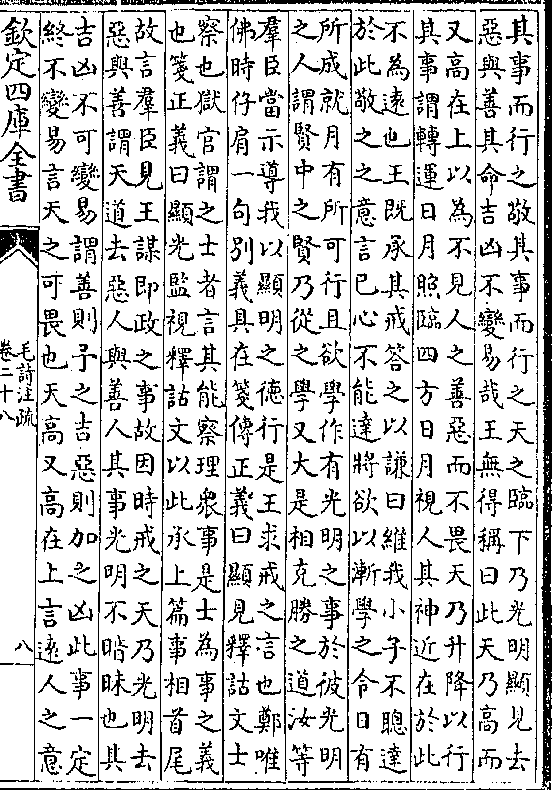 其事而行之敬其事而行之天之臨下乃光明顯見去
惡與善其命吉凶不變易哉王無得稱曰此天乃高而
又高在上以為不見人之善惡而不畏天乃升降以行
其事謂轉運日月照臨四方日月視人其神近在於此
不為遠也王既承其戒答之以謙曰維我小子不聰達
於此敬之之意言已心不能達將欲以漸學之令日有
所成就月有所可行且欲學作有光明之事於彼光明
之人謂賢中之賢乃從之學又大是相克勝之道汝等
羣臣當示導我以顯明之德行是王求戒之言也鄭唯
佛時仔肩一句別義具在箋傳正義曰顯見釋詁文士
察也獄官謂之士者言其能察理衆事是士為事之義
也箋正義曰顯光監視釋詁文以此承上篇事相首尾
故言羣臣見王謀即政之事故因時戒之天乃光明去
惡與善謂天道去惡人與善人其事光明不暗昧也其
吉凶不可變易謂善則予之吉惡則加之凶此事一定
終不變易言天之可畏也天高又高在上言遠人之意
欽定四庫全書
毛詩注疏
卷二十八
八